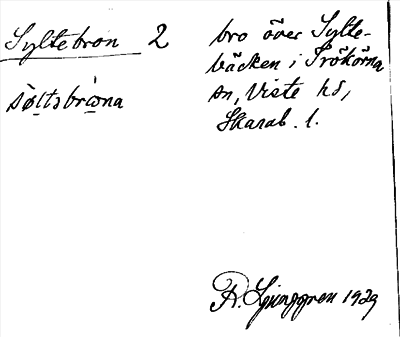 Syltebron 2
sø̀ltəbrὼna
bro över Sylte-
bäcken i Trökörna
sn, Viste hd,
Skarab. l.
R. Ljunggren 1929